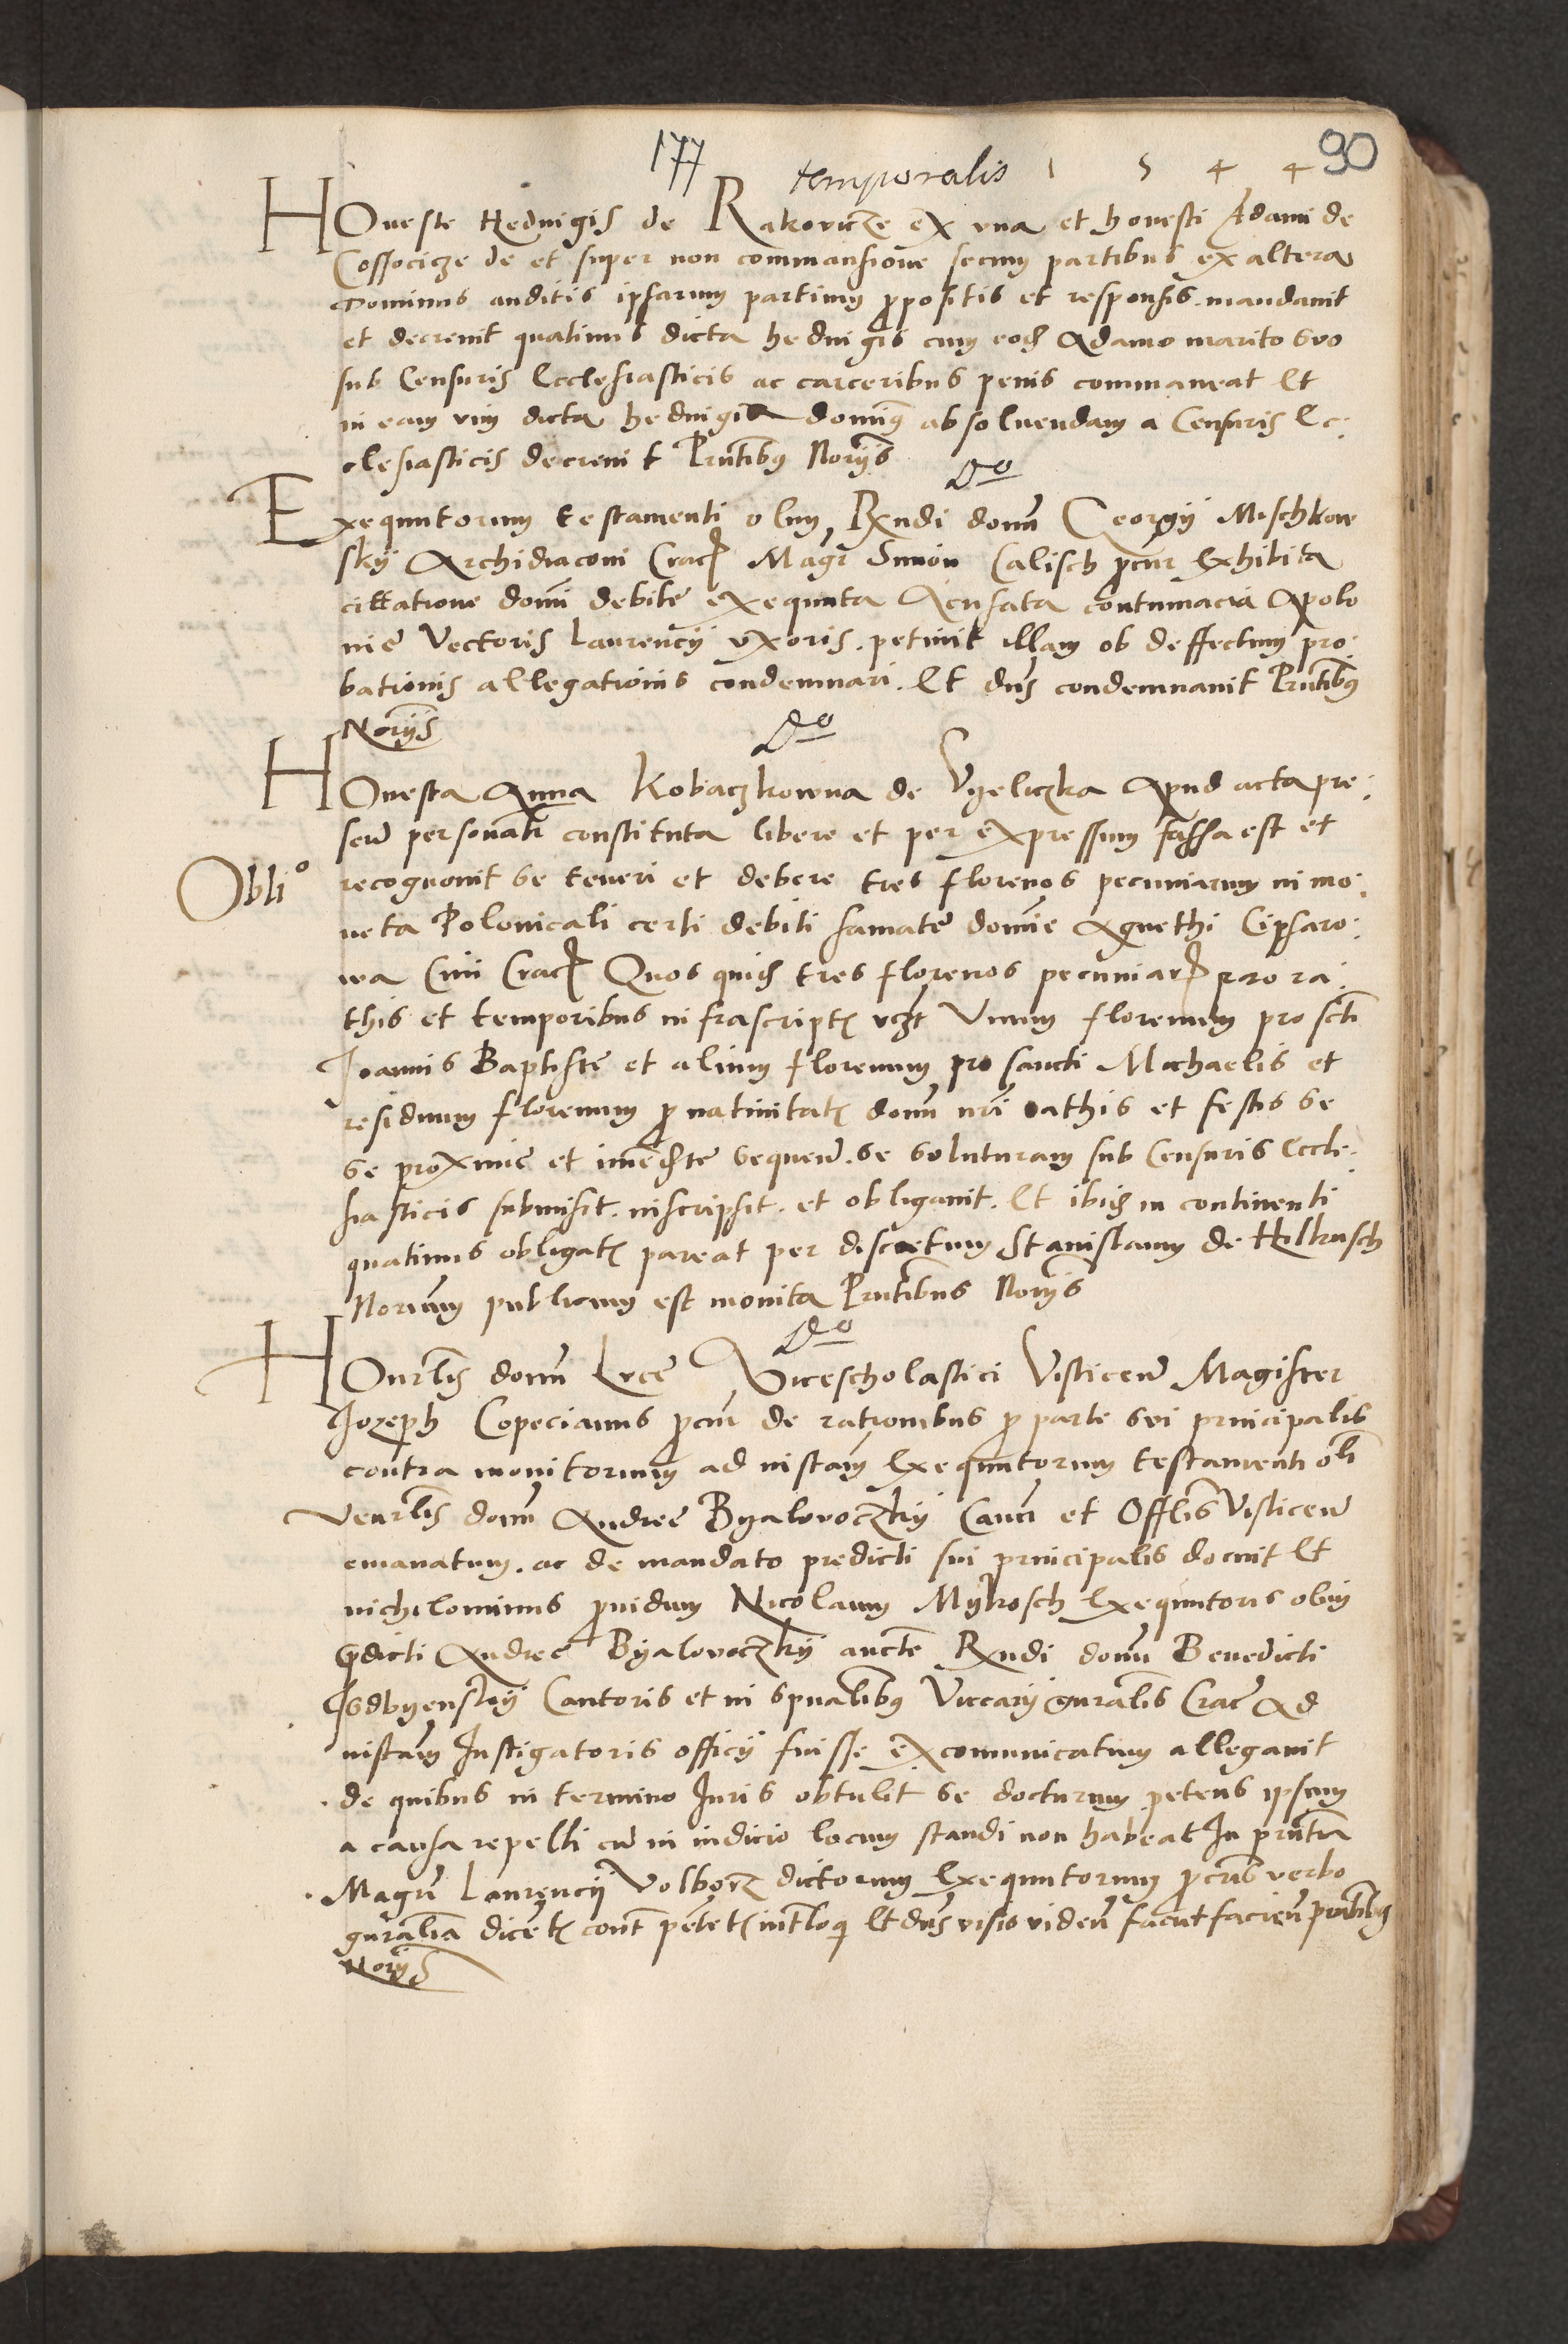 177 temporalis 1 5 4 4 90
HOneste Heduigis de Rakovicze ex vna et honesti Adami de
Cossocicze de et super non commansione secum partibus ex altera
Dominus auditis ipsarum partium ꝓpositis et responsis mandauit
et decreuit quatinus dicta heduigis cum eod Adamo marito suo
sub Censuris Ecclesiasticis ac carceribus penis commaneat Et
in eam vim dicta heduigis absoluendam a Censuris Ec:
clesiasticis decreuit Prntibus Norijs
Do
Exequutorum testamenti olim Rxndi domi Georgij Mischkow
skij Archidiaconi Crac Magr Simon Calisch ꝓcur Exhibita
cittatione domi debite exequuta Acusata contumacia Apolo
nie Vectoris Laurencij vxoris. petiuit illam ob deffectum pro:
bationis allegationis condemnari. Et dns condemnauit Prntibus
Norijs
Do
HOnesta Anna Kobaczkowna de Vyeliczka Apud acta pre:
sen personalr constituta libere et per expressum fassa est et
Oblio
recognouit se teneri et debere tres florenos pecuniarum in mo:
neta Polonicali certi debiti famate domine Agnethi Cipsaro:
wa Ciui Crac Quos quid tres florenos pecuniar pro ra:
this et temporibus infrascript vczt Vnum florenum pro scti
Joannis Baptiste et alium florenum pro sancti Michaelis et
residuum florenum ꝓ natiuitat domi nri rathis et festis se
se proxime et imediate sequen. se soluturam sub Censuris Eccle:
siasticis submisit. inscripsit. et obligauit. Et ibid in continenti
quatinus obligat pareat per discretum Stanislaum de Hilkusch
Norium publicum est monita Prntibus Norijs
Do
HOnrlis domi Luce Vicescholastici Visliceñ Magister
Jozeph Copecianus ꝓcur de rationibus ꝓ parte sui principalis
contra monitorium ad instam Exequutorum testamenti oli
venrlis domi Andree Byalovoczkij Canci et Offlis Visliceñ
emanatum. ac de mandato predicti sui principalis docuit Et
nichilominus ꝓuidum Nicolaum Mykosch Exequutoris olim
ꝓdicti Andree Byalovoczkij aucte Rxndi domi Benedicti
Jsdbyenskij Cantoris et in spualibus Viccarij gnralis Crac Ad
instam Instigatoris officij fuisse excomunicatum allegauit
de quibus in termino Juris obtulit se docturum petens ipsum
a causa repelli cu in iudicio locum standi non habeat In prntia
Magri Laurencij Volborz dictorum Exequutorum ꝓcuris verbo
gnralia dicet cont petet intloq Et dns visis viden faciet facien prntibus
Norijs